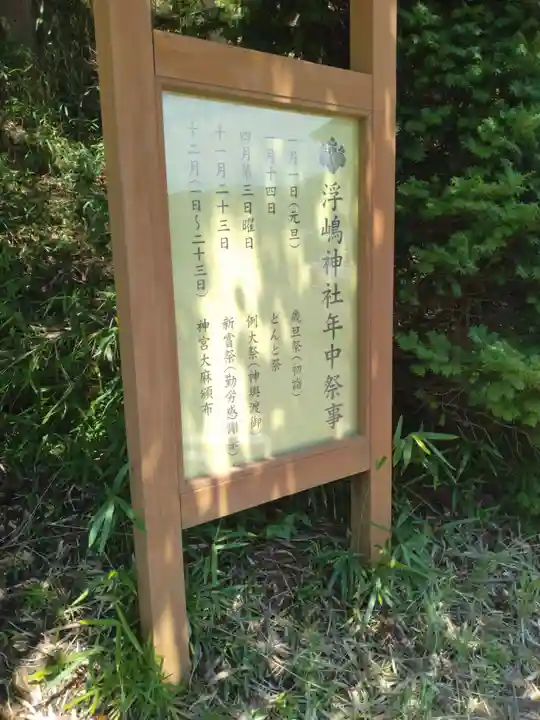 浮嶋神社年中祭事
一月一日(元旦) 歳旦祭(初詣)
一月十四日 どんと祭
四月第三日曜日 例大祭(神輿渡御)
十一月二十三日 新嘗祭(勤労感謝祭)
十二月(一日～二十三日) 神宮大麻頒布